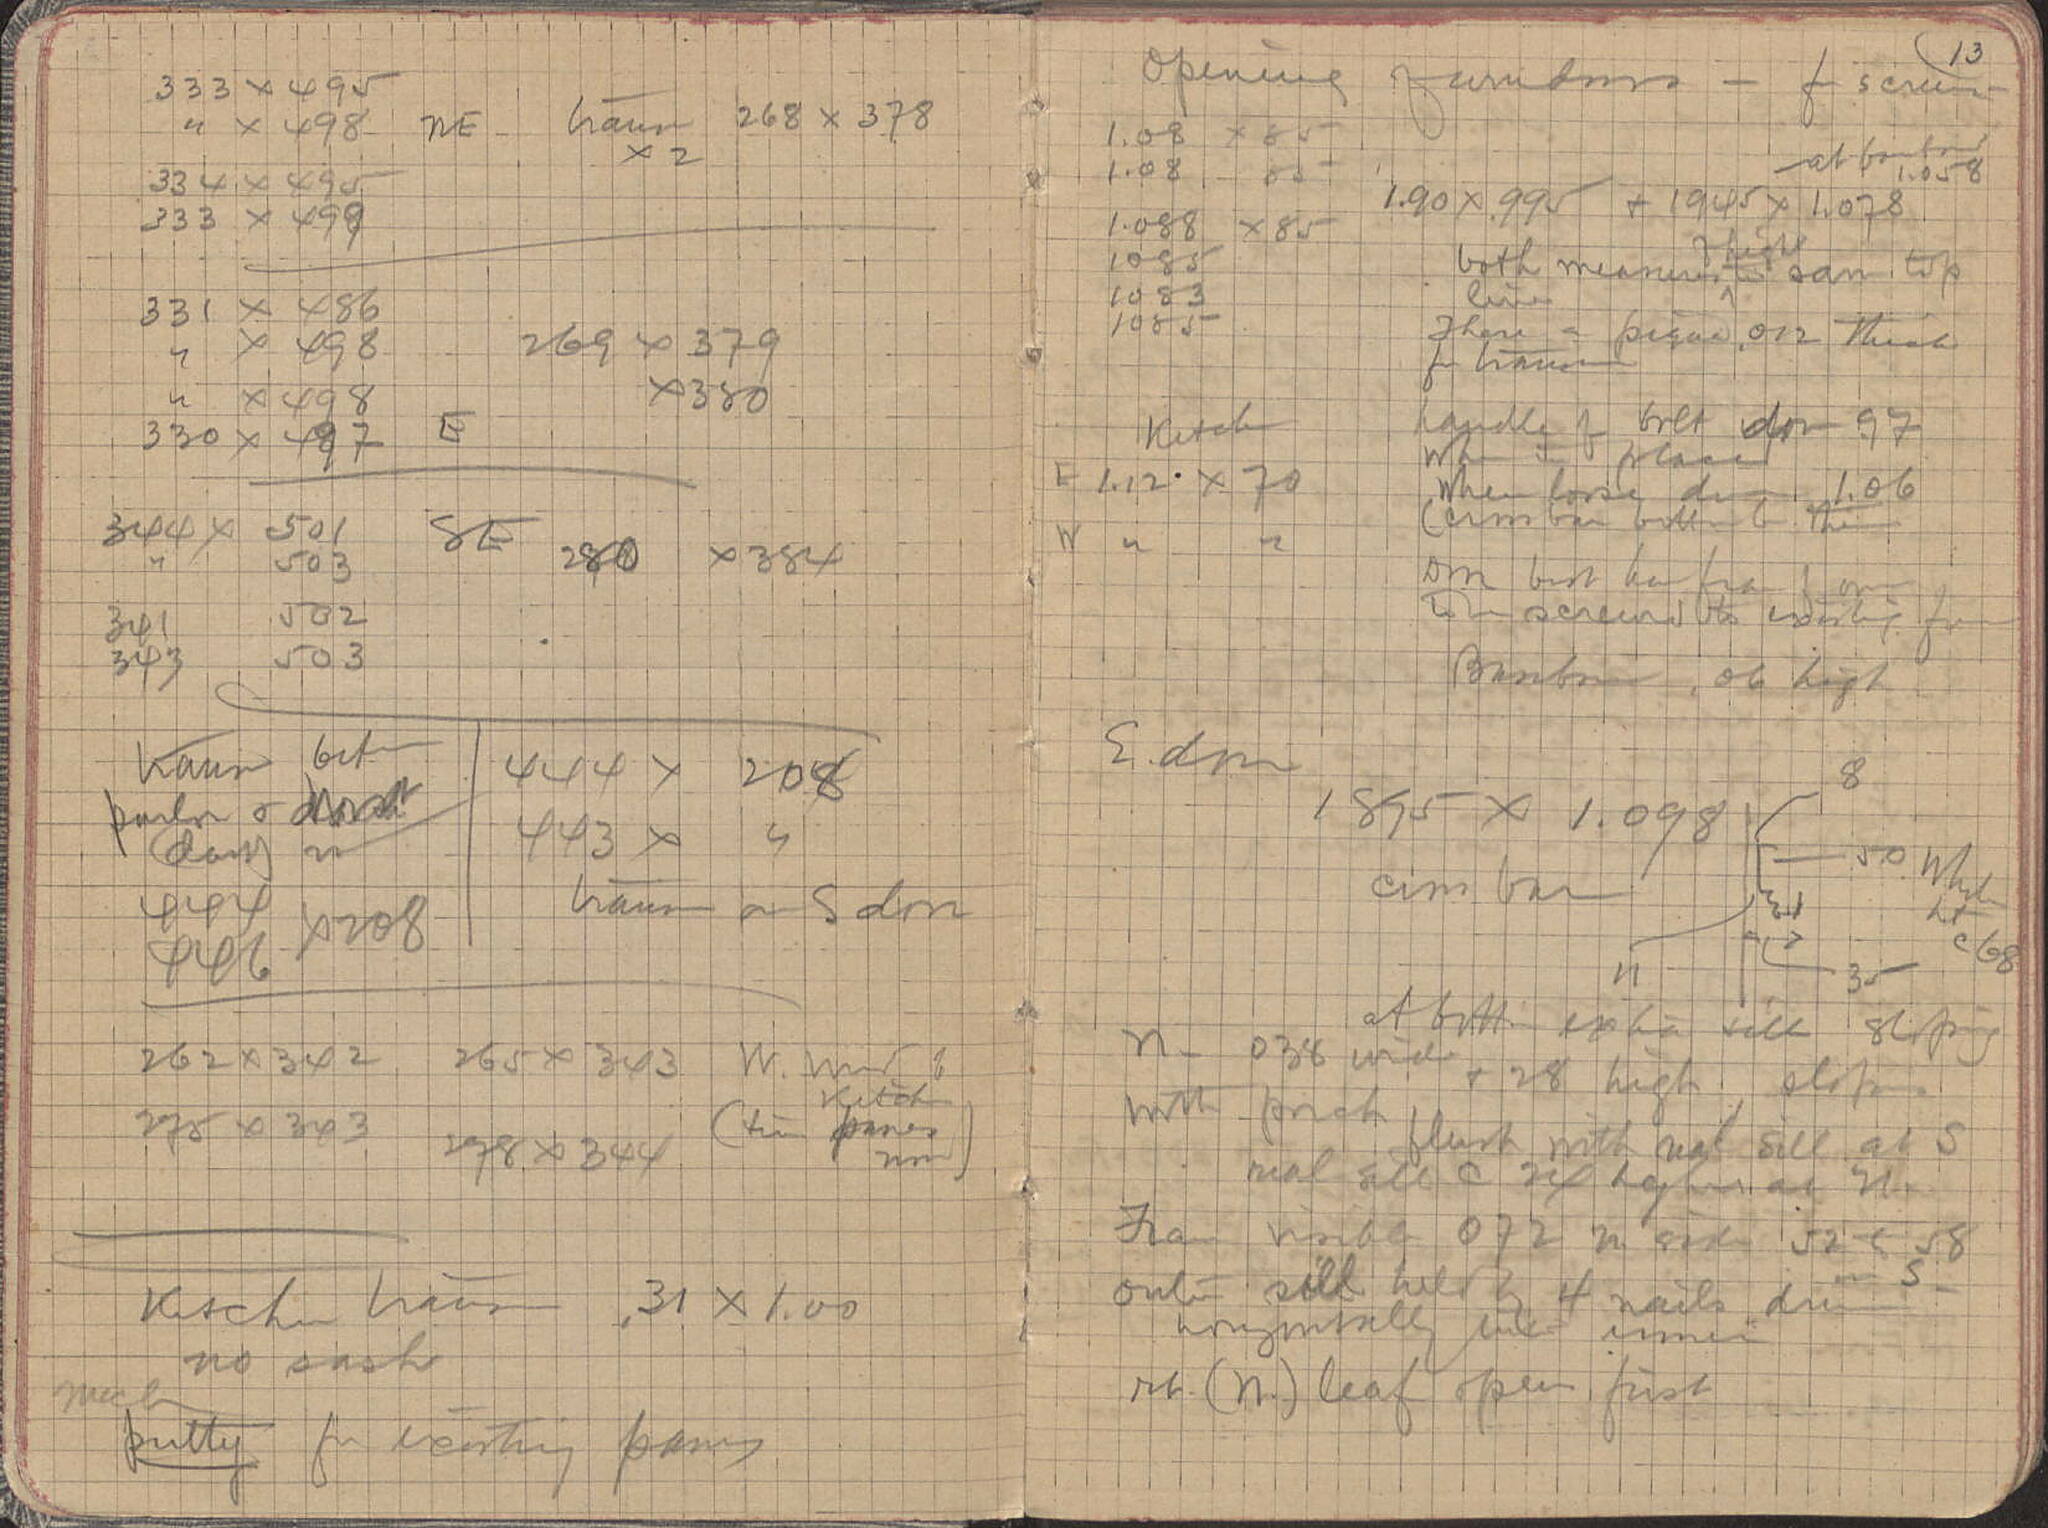 333 × 495
" × 498 NE transom 268 × 378
× 2
334 × 495
333 × 499
331 × 486
" × 498 269 × 379
" × 498 × 380
330 × 497 E
344 × 501 SE 280 × 384
" 503
341 502
343 503
transom betw
parlor &
(dark)
444
446 × 208
444 × 208
443 × "
transom on S door
262 × 342 265 × 343 W. Wind
Kitchen
275 × 343 278 × 344 (tin panes
now)
Kitchen transom .31 × 1.00
no sash
Much
putty for existing panes
13
Opening of windows — for screens
1.08 × 85
1.08 85
1.088 × 85
1085
1083
1085
at bottom
1.058
1.90 × .995 + 1945 × 1.078
of height
both measures same top
line
There a piece .012 thick
for transom
Kitchen
E 1.12 × 70
W " "
handle of bolt down .97
when in place
when loose down 1.06
(cross bar bottom to
Door best have frame of own
to be screwed to existing frame
Baseboard .06 high
E. door
1895 × 1.098
cross bar
8
50 Whole
ht
c 68
11
35
at bottom extra sill sloping
N – 038 wide + 28 high, slopes
with porch
flush with real sill at S
real sill c 24 higher at N.
Frame visible 072 N side 52 & 58
on S –
outer sill held by 4 nails driven
horizontally into inner
rt. (N.) leaf opens first